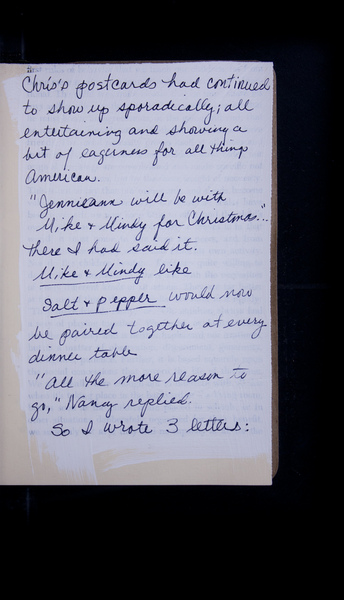 Chris's postcards had continued
to show up sporadically; all
entertaining and showing a
bit of eagerness for all things
American.
"Jennieann will be with
Mike & Mindy for Christmas"...
There I had said it.
Mike & Mindy like
Salt & pepper would now
be paired together at every
dinner table
"All the more reason to
go," Nancy replied.
So I wrote 3 letters: